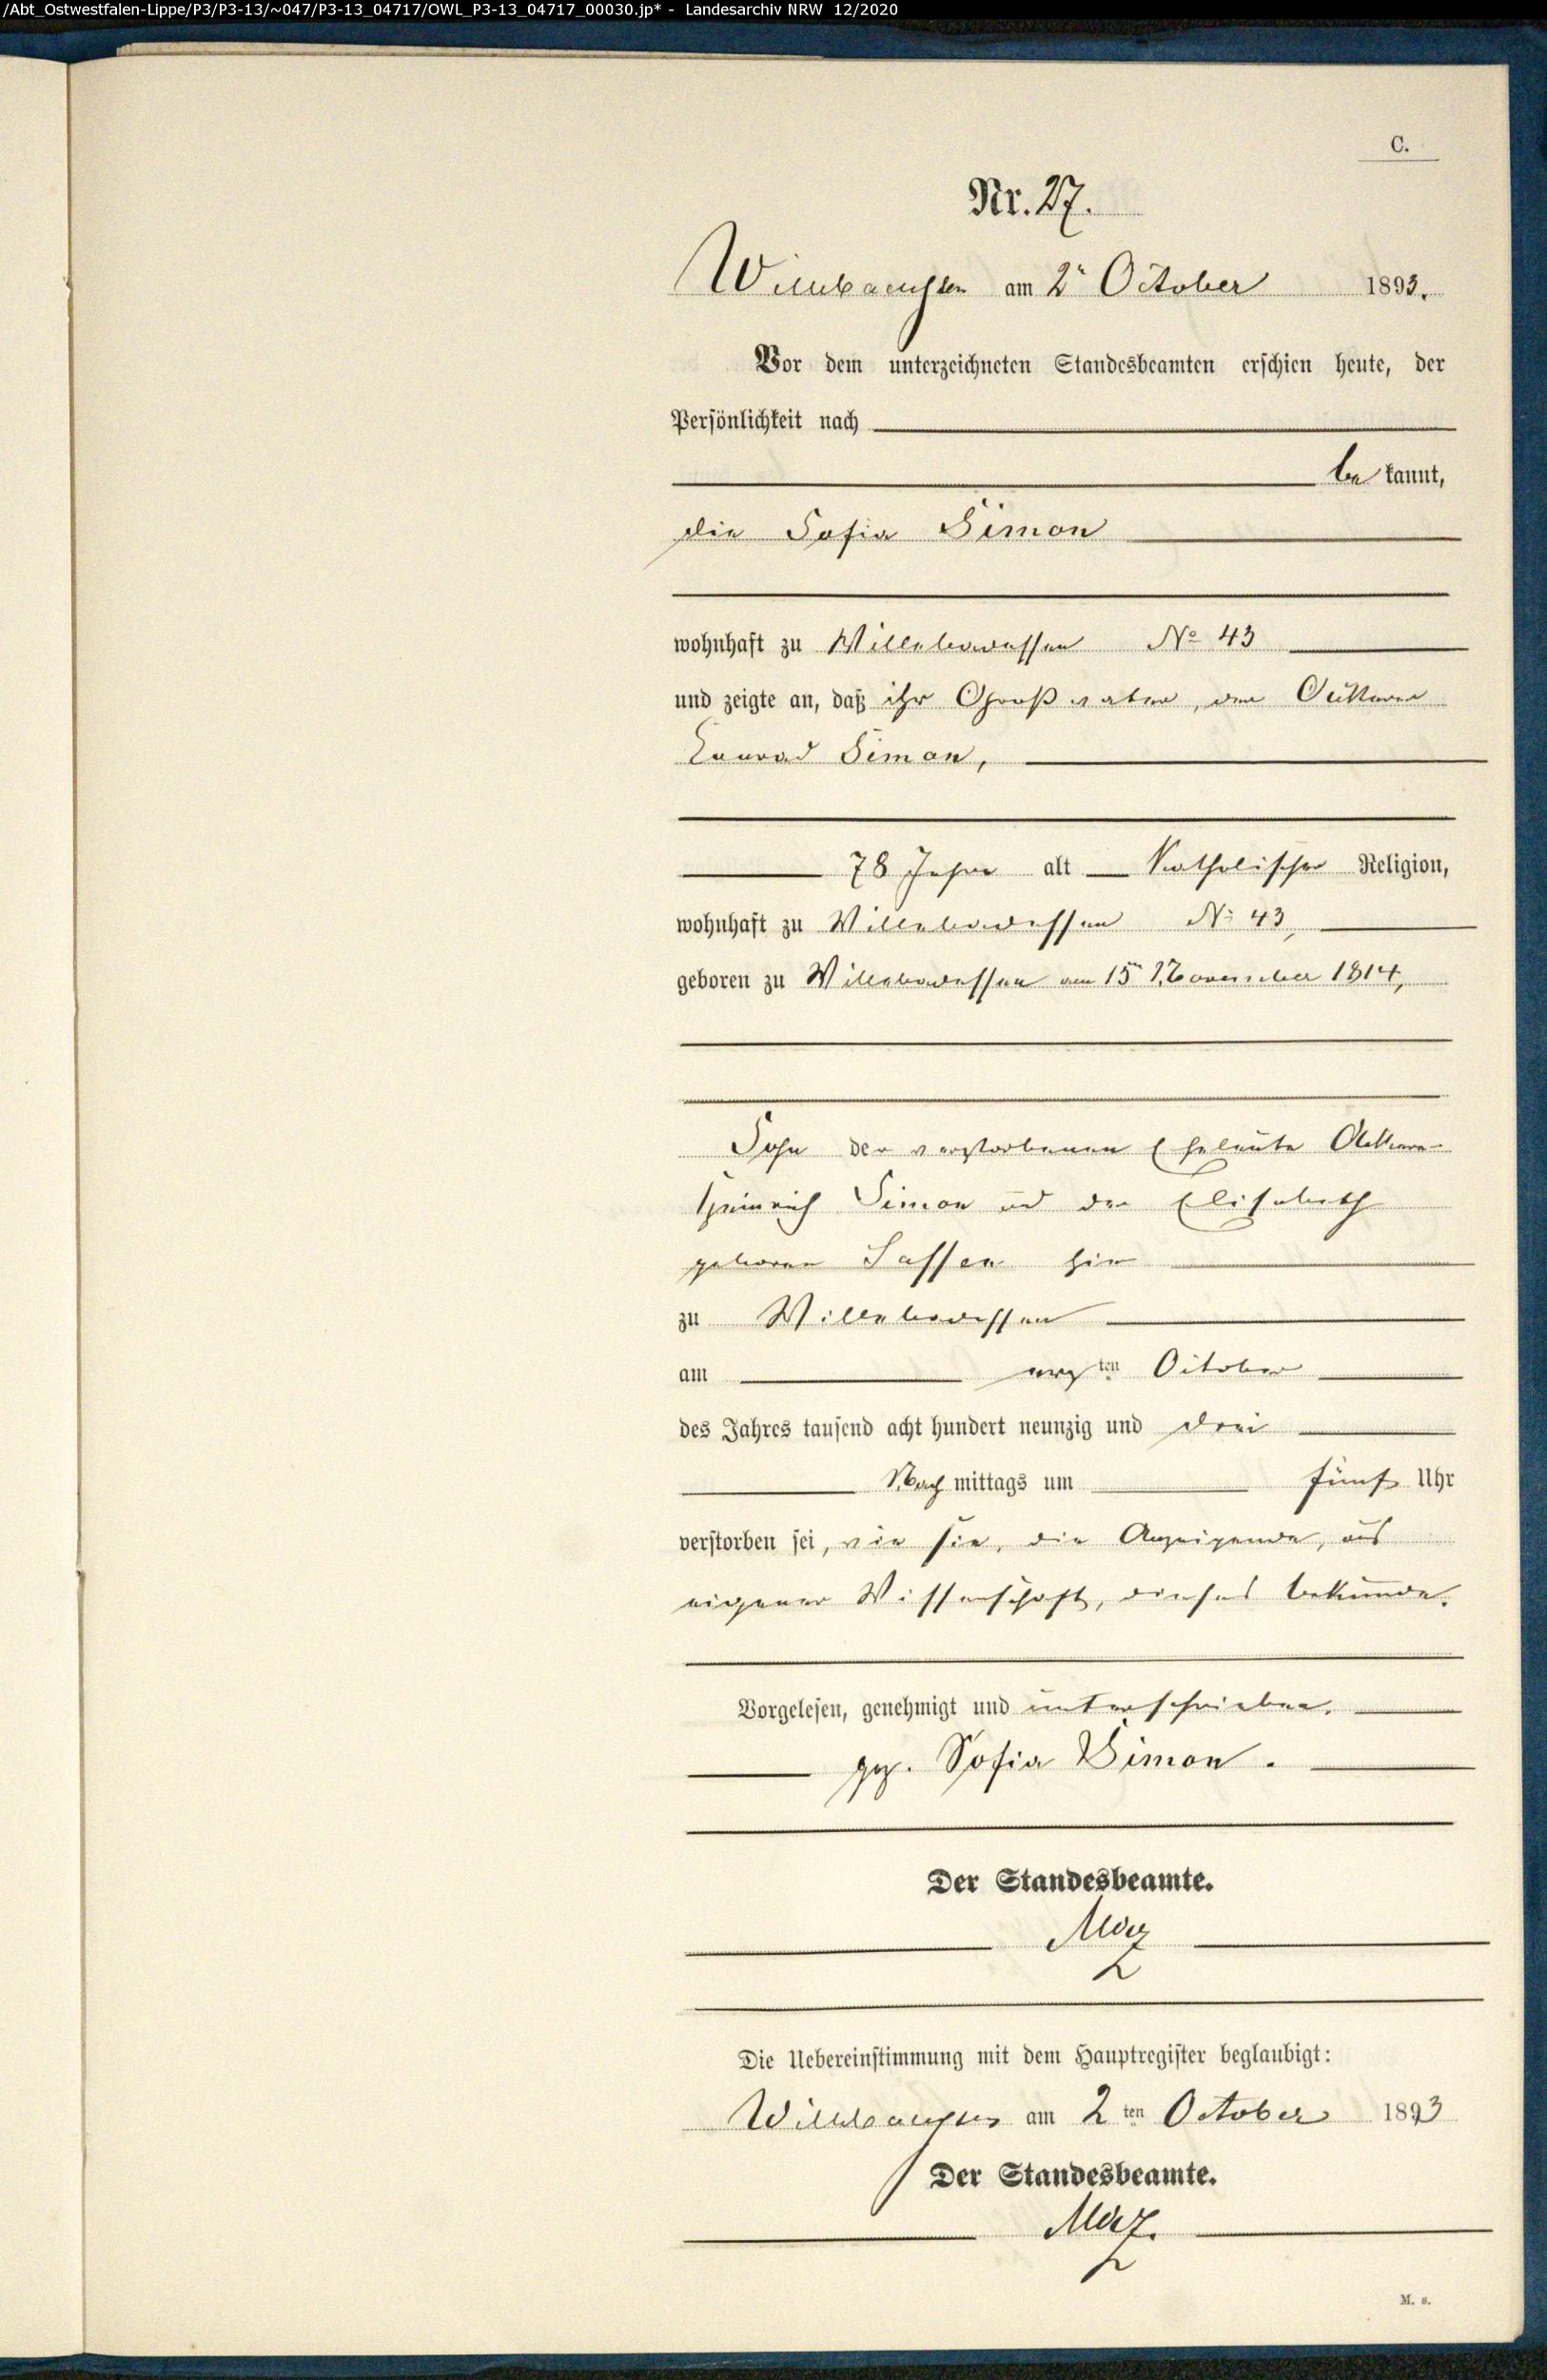 /Abt_Ostwestfalen-Lippe/P3/P3-13/~047/P3-13_04717/OWL_P3-13_04717_00030.jp* - Landesarchiv NRW 12/2020
C.
Nr. 27.
Willebadessen am 2ⁿ October 1893.
Vor dem unterzeichneten Standesbeamten erschien heute, der
Persönlichkeit nach
be kannt,
die Sofia Simon
wohnhaft zu Willebadessen No 43
und zeigte an, daß ihr Großvater, der
Conrad Simon,
78 Jahre alt Katholischer Religion,
wohnhaft zu Willebadessen No 43,
geboren zu Willebadessen am 15ⁿ November 1814,
Sohn der verstorbenen Eheleute Ackerer
Heinrich Simon und der Elisabeth
geborene Sassen hier
zu Willebadessen
am ersten October
des Jahres tausend acht hundert neunzig und drei
Nach mittags um fünf Uhr
verstorben sei, wie sie, die Anzeigende, aus
eigener Wissenschaft, dieses bekunde.
Vorgelesen, genehmigt und unterschrieben.
gez. Sofia Simon.
Der Standesbeamte.
Die Uebereinstimmung mit dem Hauptregister beglaubigt:
Willebadessen am 2 ten October 1893
Der Standesbeamte.
M. s.